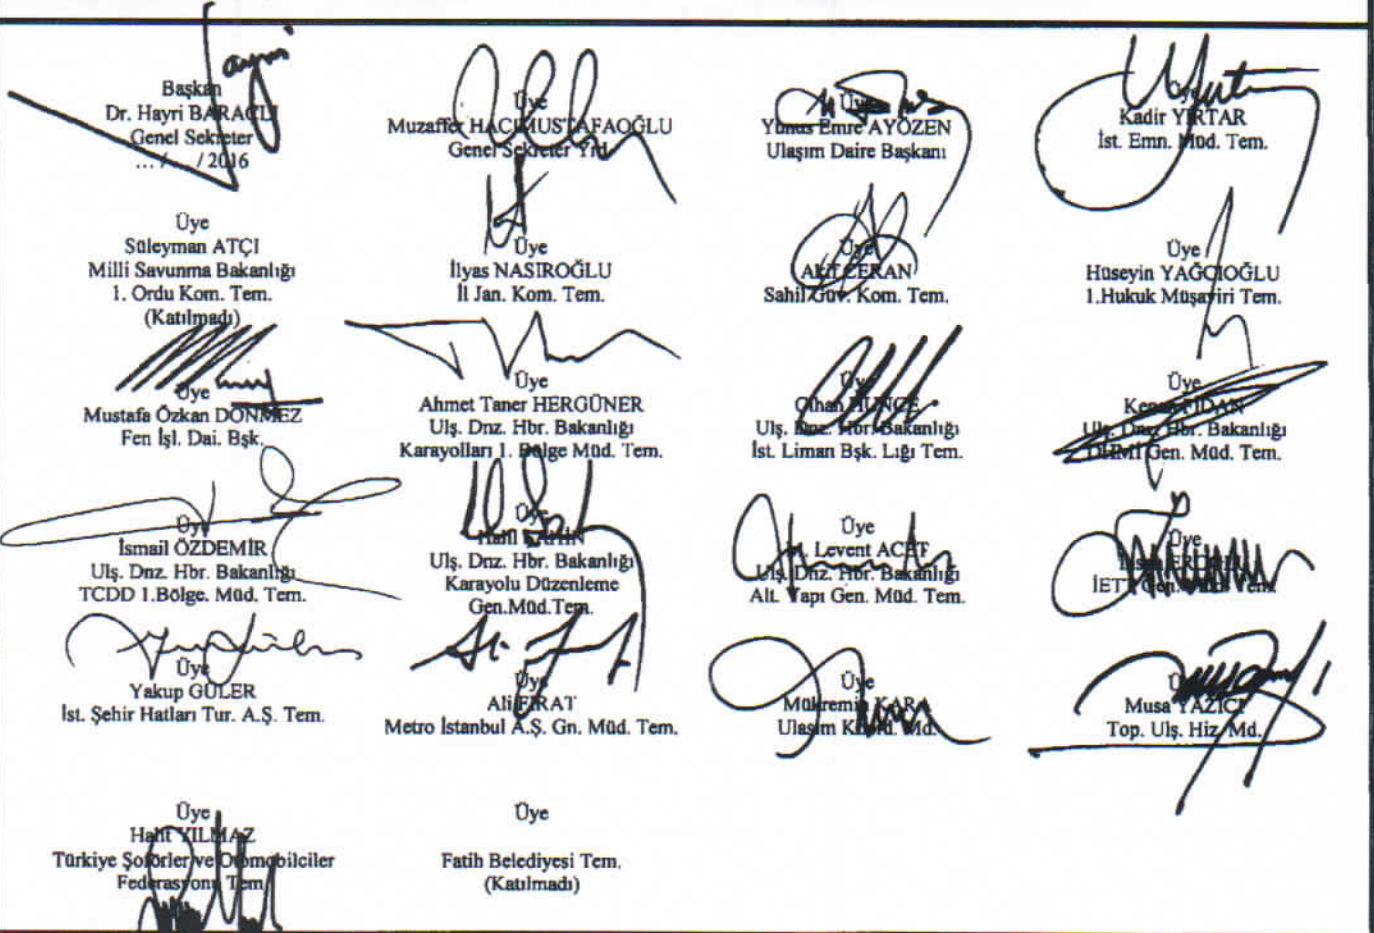 Başkan
Dr. Hayri BARAÇLI
Genel Sekreter
... / ... / 2016
Üye
Muzaffer HACIMUSTAFAOĞLU
Genel Sekreter Yrd.
Üye
Yunus Emre AYÖZEN
Ulaşım Daire Başkanı
Üye
Kadir YIRTAR
İst. Emn. Müd. Tem.
Üye
Süleyman ATÇI
Milli Savunma Bakanlığı
1. Ordu Kom. Tem.
(Katılmadı)
Üye
İlyas NASIROĞLU
İl Jan. Kom. Tem.
Üye
CERAN
Sahil Güv. Kom. Tem.
Üye
Hüseyin YAĞCIOĞLU
1.Hukuk Müşaviri Tem.
Üye
Mustafa Özkan DÖNMEZ
Fen İşl. Dai. Bşk.
Üye
Ahmet Taner HERGÜNER
Ulş. Dnz. Hbr. Bakanlığı
Karayolları 1. Bölge Müd. Tem.
Üye
Cihan HUNCE
Ulş. Dnz. Hbr. Bakanlığı
İst. Liman Bşk. Lığı Tem.
Üye
Kenan FIDAN
Ulş. Dnz. Hbr. Bakanlığı
DHMİ Gen. Müd. Tem.
Üye
İsmail ÖZDEMİR
Ulş. Dnz. Hbr. Bakanlığı
TCDD 1.Bölge. Müd. Tem.
Üye
Halil ŞAHİN
Ulş. Dnz. Hbr. Bakanlığı
Karayolu Düzenleme
Gen.Müd.Tem.
Üye
Levent ACET
Ulş. Dnz. Hbr. Bakanlığı
Alt. Yapı Gen. Müd. Tem.
Üye
İETT Gen. Tem.
Üye
Yakup GÜLER
İst. Şehir Hatları Tur. A.Ş. Tem.
Üye
Ali FIRAT
Metro İstanbul A.Ş. Gn. Müd. Tem.
Üye
Mükremin KARA
Ulaşım Koord. Md.
Musa YAZICI
Top. Ulş. Hiz. Md.
Üye
Halit YILMAZ
Türkiye Şoförler ve Otomobilciler
Federasyonu Tem.
Üye
Fatih Belediyesi Tem.
(Katılmadı)